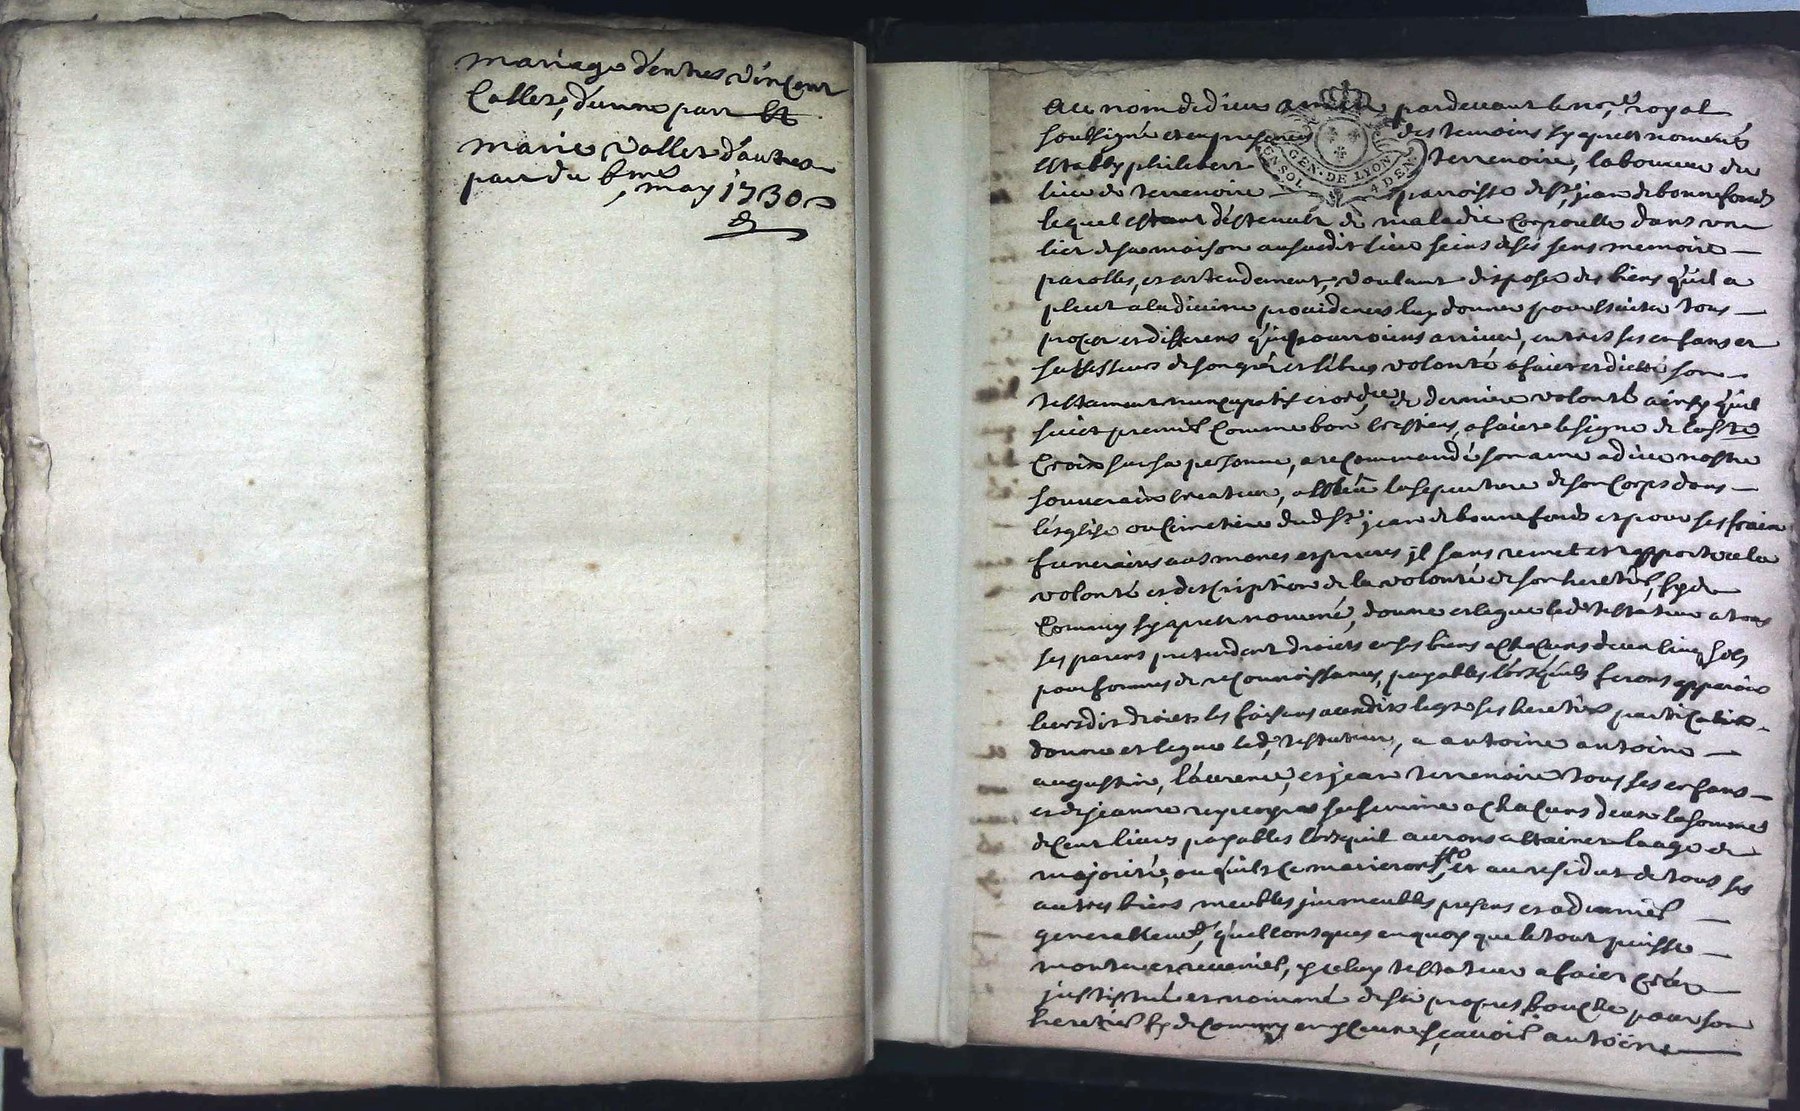 mariage d'entres vincent
Collet, d'unne part et
marie vallet d'autres
part du 6me may 1730
Au nom de dieu amen pardevant le no.re royal
soubsigné et en presences des temoins sy apres nommés
estably philibert terrenoire, laboureur du
lieu de terrenoire parroisse de st jean de bonnefonds
GEN. DE LYON
4 DEN
lequel estant destenult de maladie corporelle dans un
lict de sa maison au susdit lieu seins de ses sens memoire
parolles, et entendement, voulant disposer des biens qu'il a
pleut a la divine providences luy donner pour esviter tous
proces et differens qui pourroient arriver, entres ses enfans et
sucesseurs de son gré et libres volonté a faict et dicté son
testament nuncupatif et ord.re de derniere volonté ainsy qu'il
suict premier comme bon crestiens, a faict le signe de la ste
Croix sur sa personne, a recommandé son ame a dieu nostre
souverain createur, a esleu la sepulture de son corps dans
l'esglise ou cimetiere dud st jean de bonnefonds et pour ses frais
funeraires aumones et prieres il sans remet et rapporte a la
volonté et description de la volonté de son heretier, sy de
commis sy apres nommé, donne et legue led testateur a tous
ses parens pretendent droicts en ses biens a chacuns deux cinq sols
pour formes de reconnoissances, payables lorsquils feront apparoir
leursdit droicts les faisens au moyen du legs ses heretiers particuliers
donne et legue led, testateur, a antoine antoine
augustin, laurence, et jean terrenoire tous ses enfans
et de jeanne sa femme a chacuns deux la sommes
de cent livres payables lorsquil auront attainct laage de
majorité, ou quils ce marieront, et au residut de tous ses
autres biens meubles immeubles presens et advenier
generallem.t quelconsques en quoy que le tout puisse
monter et revenier, yceluy testateur a faict créé
institué et nommé de sa propres bouche pour son
heretier sçavoir antoine